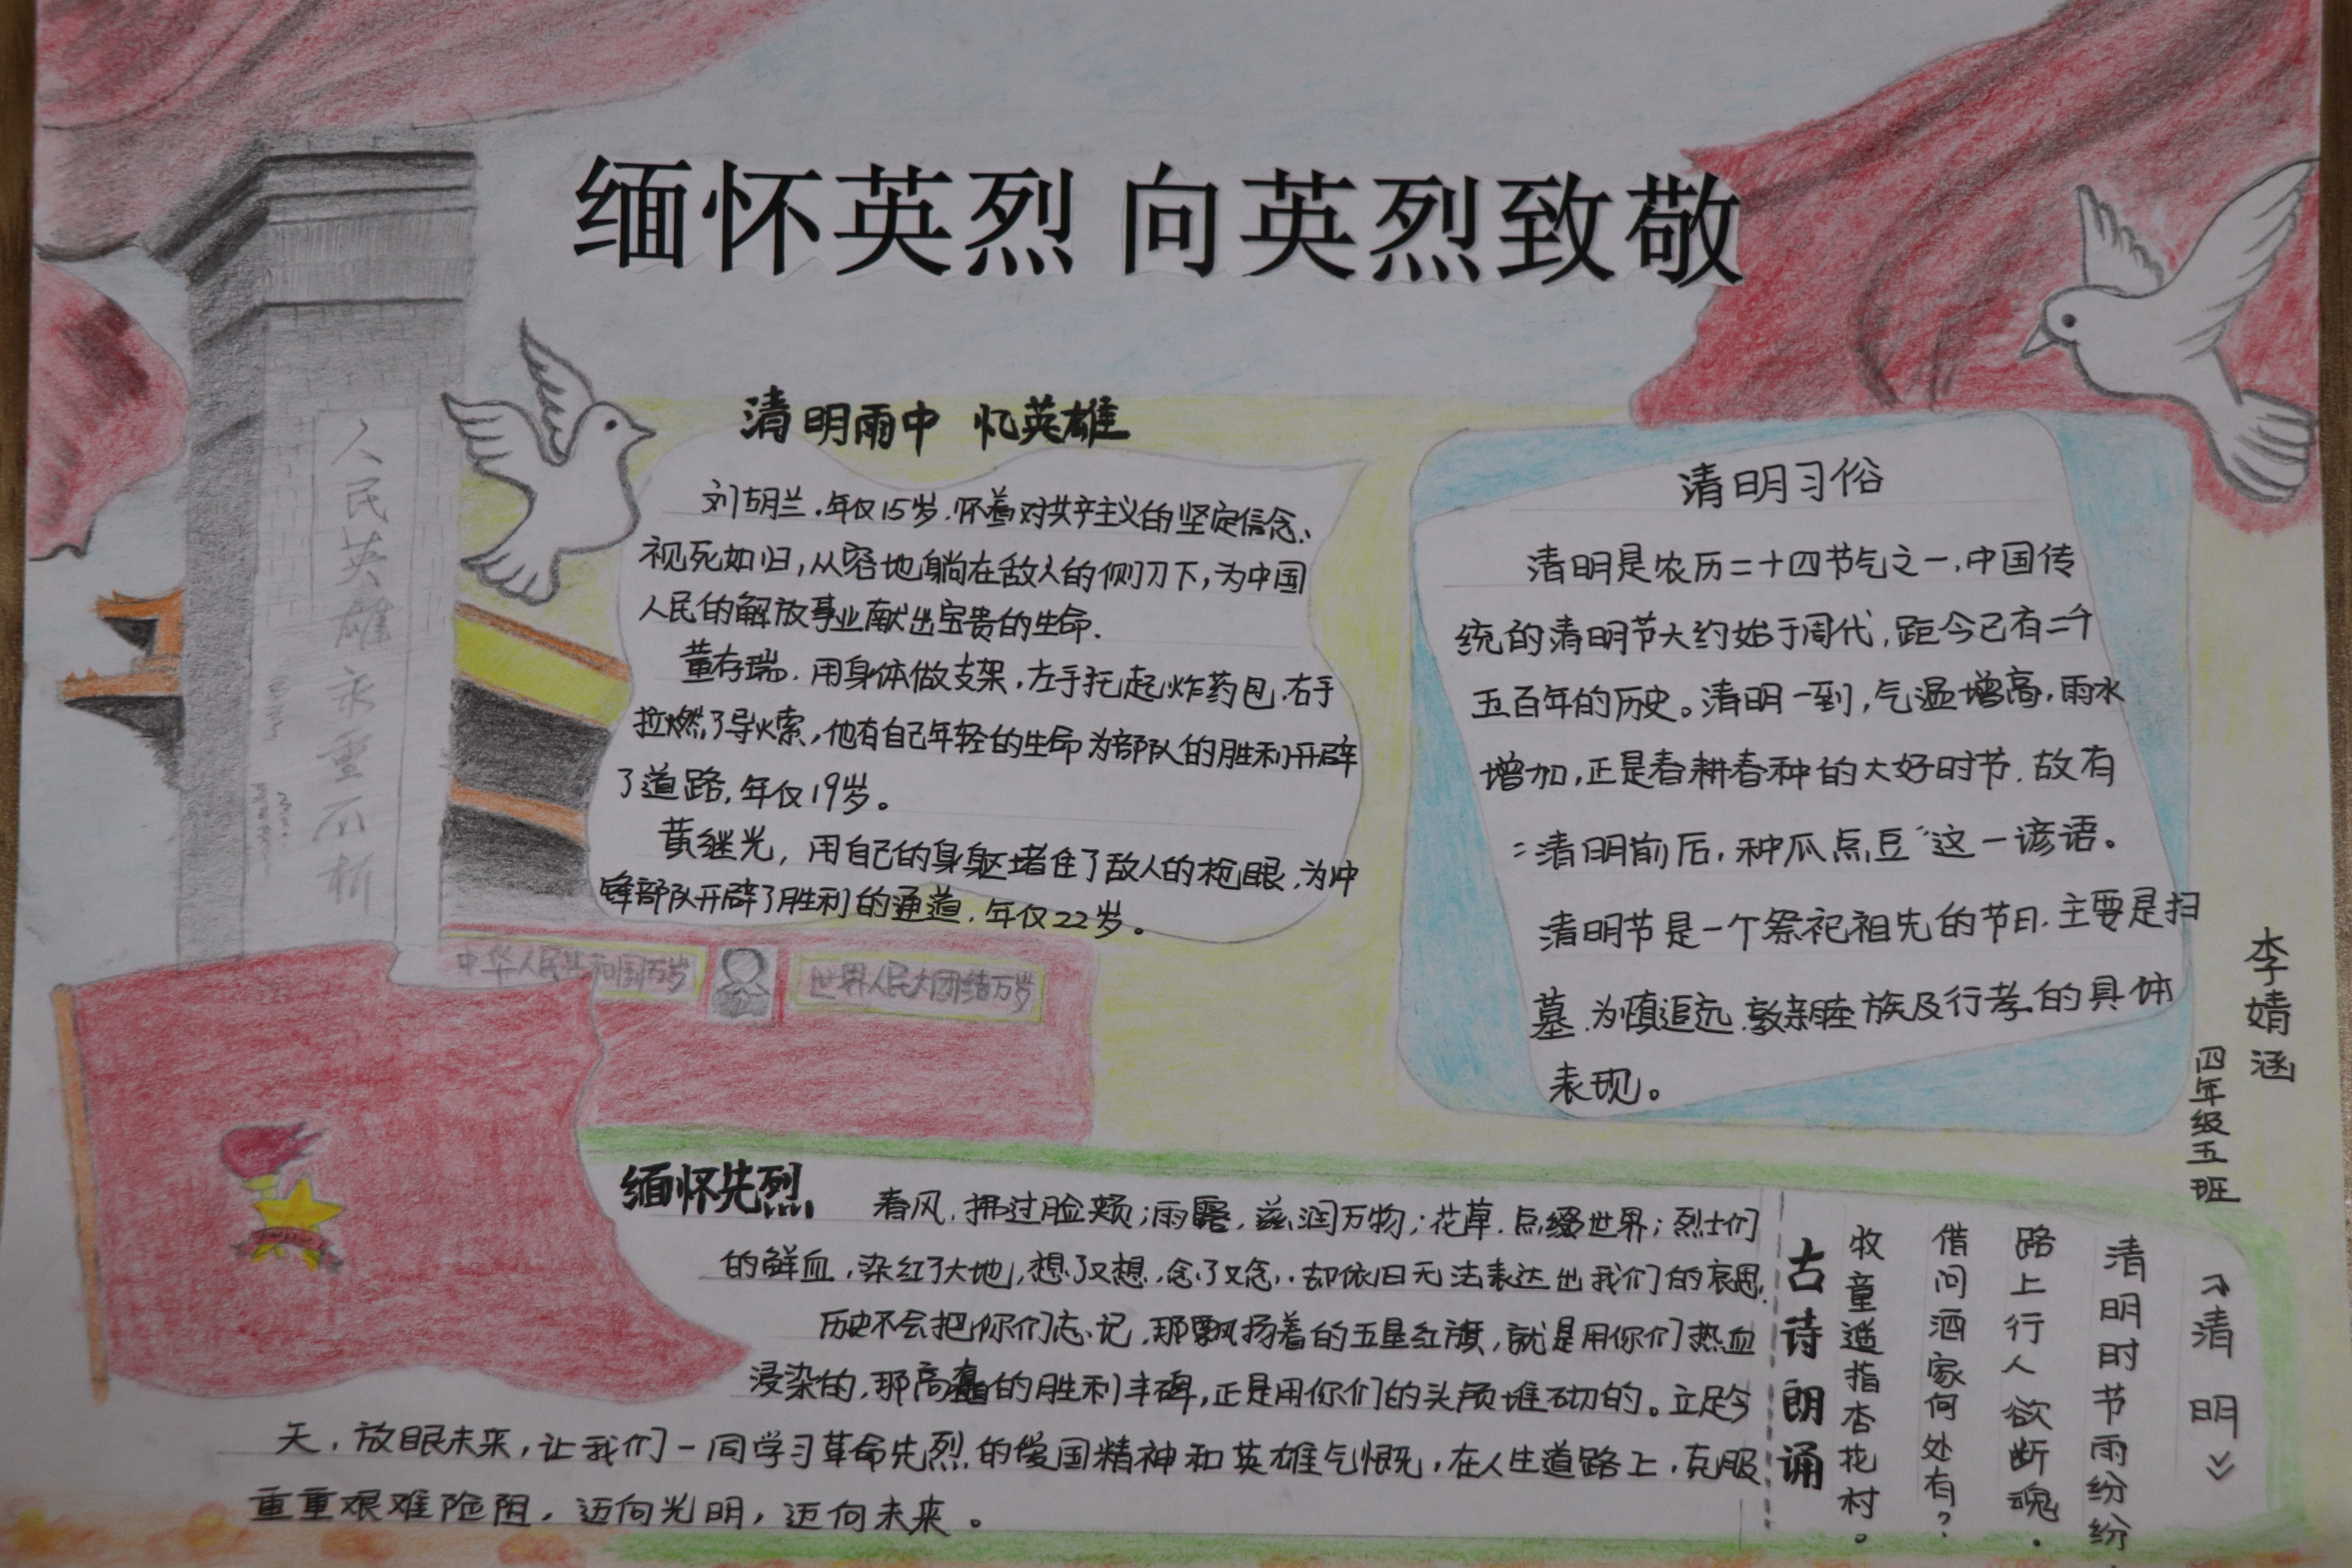 缅怀英烈 向英烈致敬
人民英雄永垂不朽
清明雨中 忆英雄
刘胡兰，年仅15岁，怀着对共产主义的坚定信念、
视死如归，从容地躺在敌人的侧刀下，为中国
人民的解放事业献出宝贵的生命.
董存瑞，用身体做支架，左手托起炸药包，右手
拉燃了导火索，他有自己年轻的生命为部队的胜利开辟
了道路，年仅19岁。
黄继光，用自己的身躯堵住了敌人的枪眼，为冲
锋部队开辟了胜利的通道，年仅22岁。
中华人民共和国万岁
世界人民大团结万岁
清明习俗
清明是农历二十四节气之一，中国传
统的清明节大约始于周代，距今已有二千
五百年的历史。清明一到，气温增高，雨水
增加，正是春耕春种的大好时节，故有
“清明前后，种瓜点豆”这一谚语。
清明节是一个祭祀祖先的节日，主要是扫
墓，为慎追远、敦亲睦族及行孝的具体
表现。
李婧涵
四年级五班
缅怀先烈
春风，拂过脸颊；雨露，滋润万物；花草，点缀世界；烈士们
的鲜血，染红了大地，想了又想，念了又念，却依旧无法表达出我们的哀思.
历史不会把你们忘记，那飘扬着的五星红旗，就是用你们热血
浸染的，那高矗的胜利丰碑，正是用你们的头颅堆砌的。立足今
天，放眼未来，让我们一同学习革命先烈的爱国精神和英雄气慨，在人生道路上，克服
重重艰难险阻，迈向光明，迈向未来。
古诗朗诵
《清明》
清明时节雨纷纷
路上行人欲断魂.
借问酒家何处有？
牧童遥指杏花村。